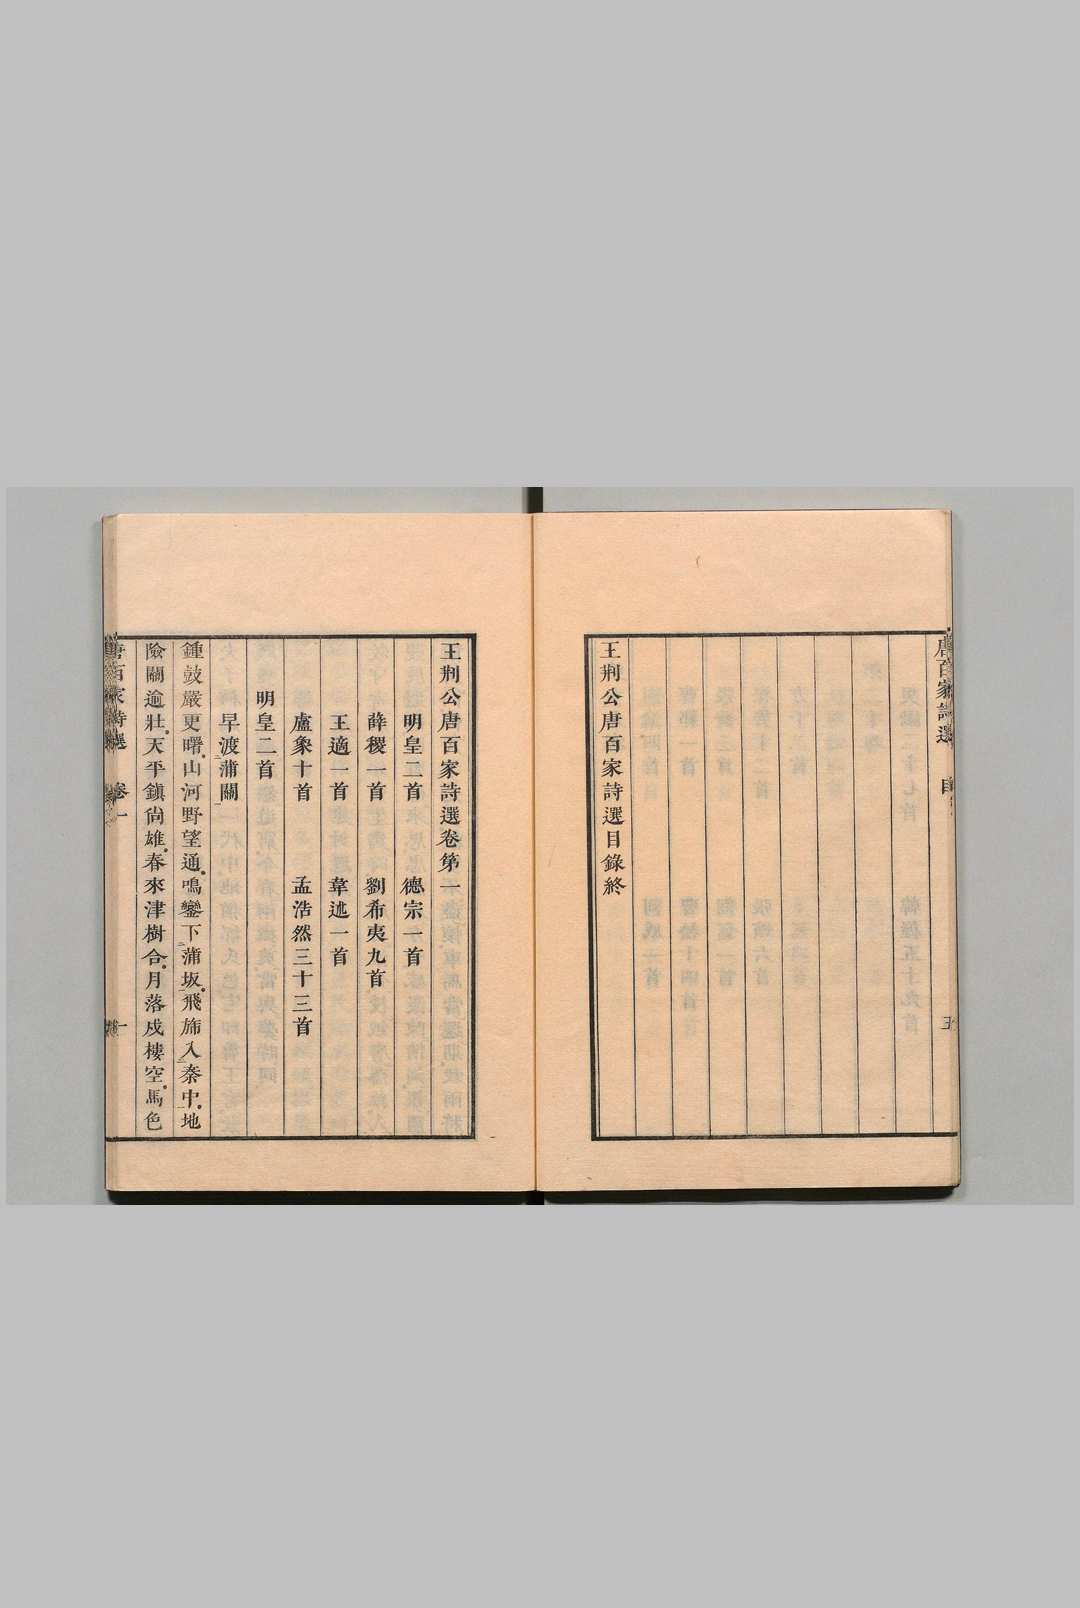 唐百家詩選 目 五
王荆公唐百家詩選目錄終
王荆公唐百家詩選卷第一
明皇二首 德宗一首
薛稷一首 劉希夷九首
王適一首 韋述一首
盧象十首 孟浩然三十三首
明皇二首
早渡蒲關
鍾鼓嚴更曙山河野望通鳴鑾下蒲坂飛旆入秦中地
險關逾壯天平鎮尙雄春來津樹合月落戍樓空馬色
唐百家詩選 卷一 一